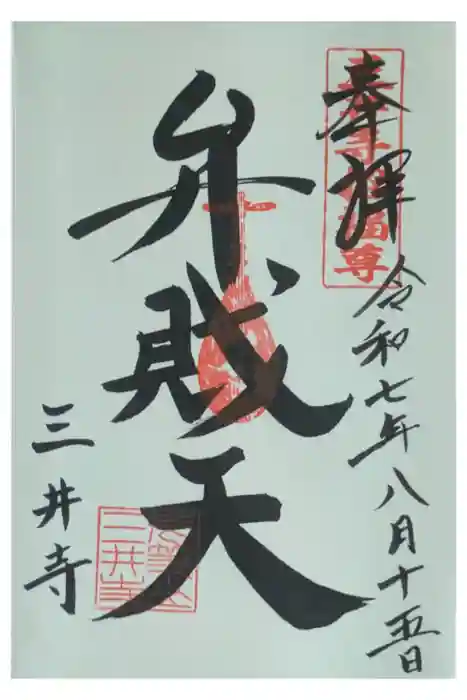 奉拝
令和七年八月十五日
弁財天
三井寺
三井寺